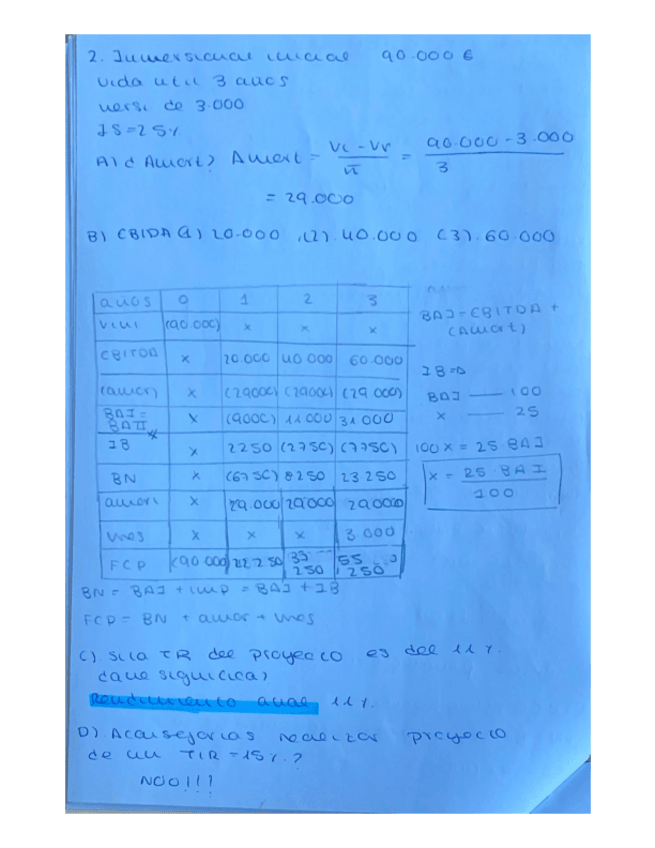 2. Inmersional inicial 90.000 €
vida util 3 años
versi de 3.000
IS=25%
A) ¿ Amort? Amort = Vi - Vr / n = 90.000 - 3.000 / 3
= 29.000
B) EBIDA (1) 20.000 , (2). 40.000 (3). 60.000
años 0 1 2 3
V. ini (90.000) x x x
EBITDA x 20.000 40 000 60.000
(amor) x (29000) (29000) (29 000)
BAI = BAII x (9000) 11 000 31 000
IB x 2250 (2750) (7750)
BN x (6750) 8250 23.250
amort x 29.000 29.000 29.000
Vres x x x 3 000
FCP (90.000) 22250 33 250 55 250
BAI=EBITDA +
(Amort)
IB =D
BAI — 100
x — 25
100x = 25 BAI
x = 25 BAI / 100
BN = BAI + imp = BAI + IB
FCP = BN + amor + Vres
C). Si la TR del proyecto es del 11%
¿que significa?
Rendimiento anual 11%.
D). Aconsejarias realizar proyecto
de un TIR =15%.?
NOO!!!